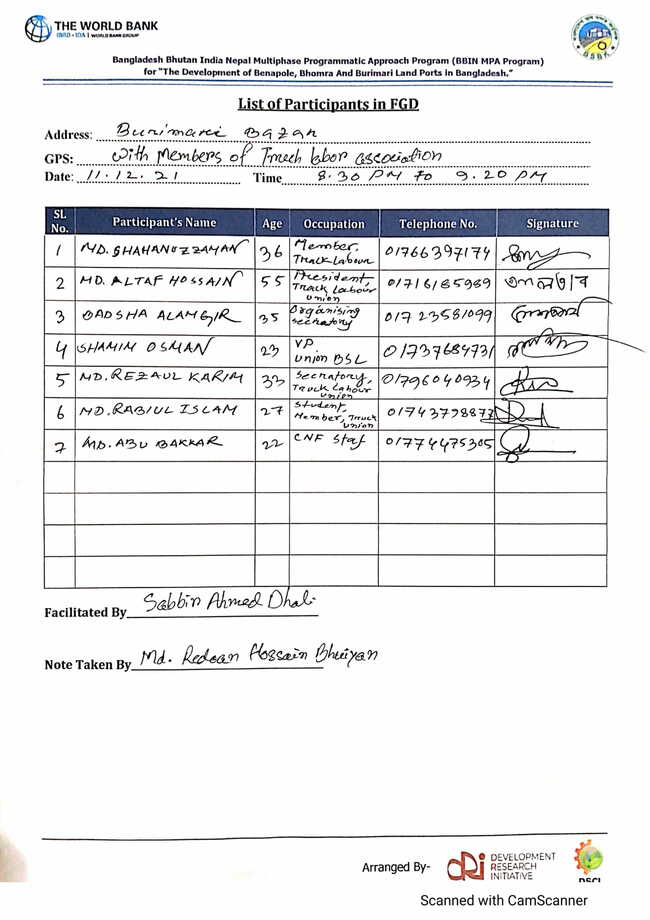 THE WORLD BANK
IBRD • IDA | WORLD BANK GROUP
BSBK
Bangladesh Bhutan India Nepal Multiphase Programmatic Approach Program (BBIN MPA Program)
for "The Development of Benapole, Bhomra And Burimari Land Ports in Bangladesh."
List of Participants in FGD
Address: Burimari Bazar
GPS: With Members of Truck labor association
Date: 11.12.21 Time 8.30 PM to 9.20 PM
SL No. Participant's Name Age Occupation Telephone No. Signature
1 MD. SHAHANUZZAMAN 36 Member, Track Labour 01766397174
2 MD. ALTAF HOSSAIN 55 President Track Labour union 01716185989 আলতাব
3 BADSHA ALAMGIR 35 Organising secratory 01723581099
4 SHAMIM OSMAN 23 VP union BSL 01737684731
5 MD. REZAUL KARIM 33 Secratory, Truck Labour union 01796040934
6 MD. RABIUL ISLAM 27 Student, Member, Truck union 01743778877
7 MD. ABU BAKKAR 22 CNF Staf 01774475305
Facilitated By Sabbin Ahmed Dhali
Note Taken By Md. Redoan Hossain Bhuiyan
Arranged By- dRi DEVELOPMENT RESEARCH INITIATIVE DSCL
Scanned with CamScanner